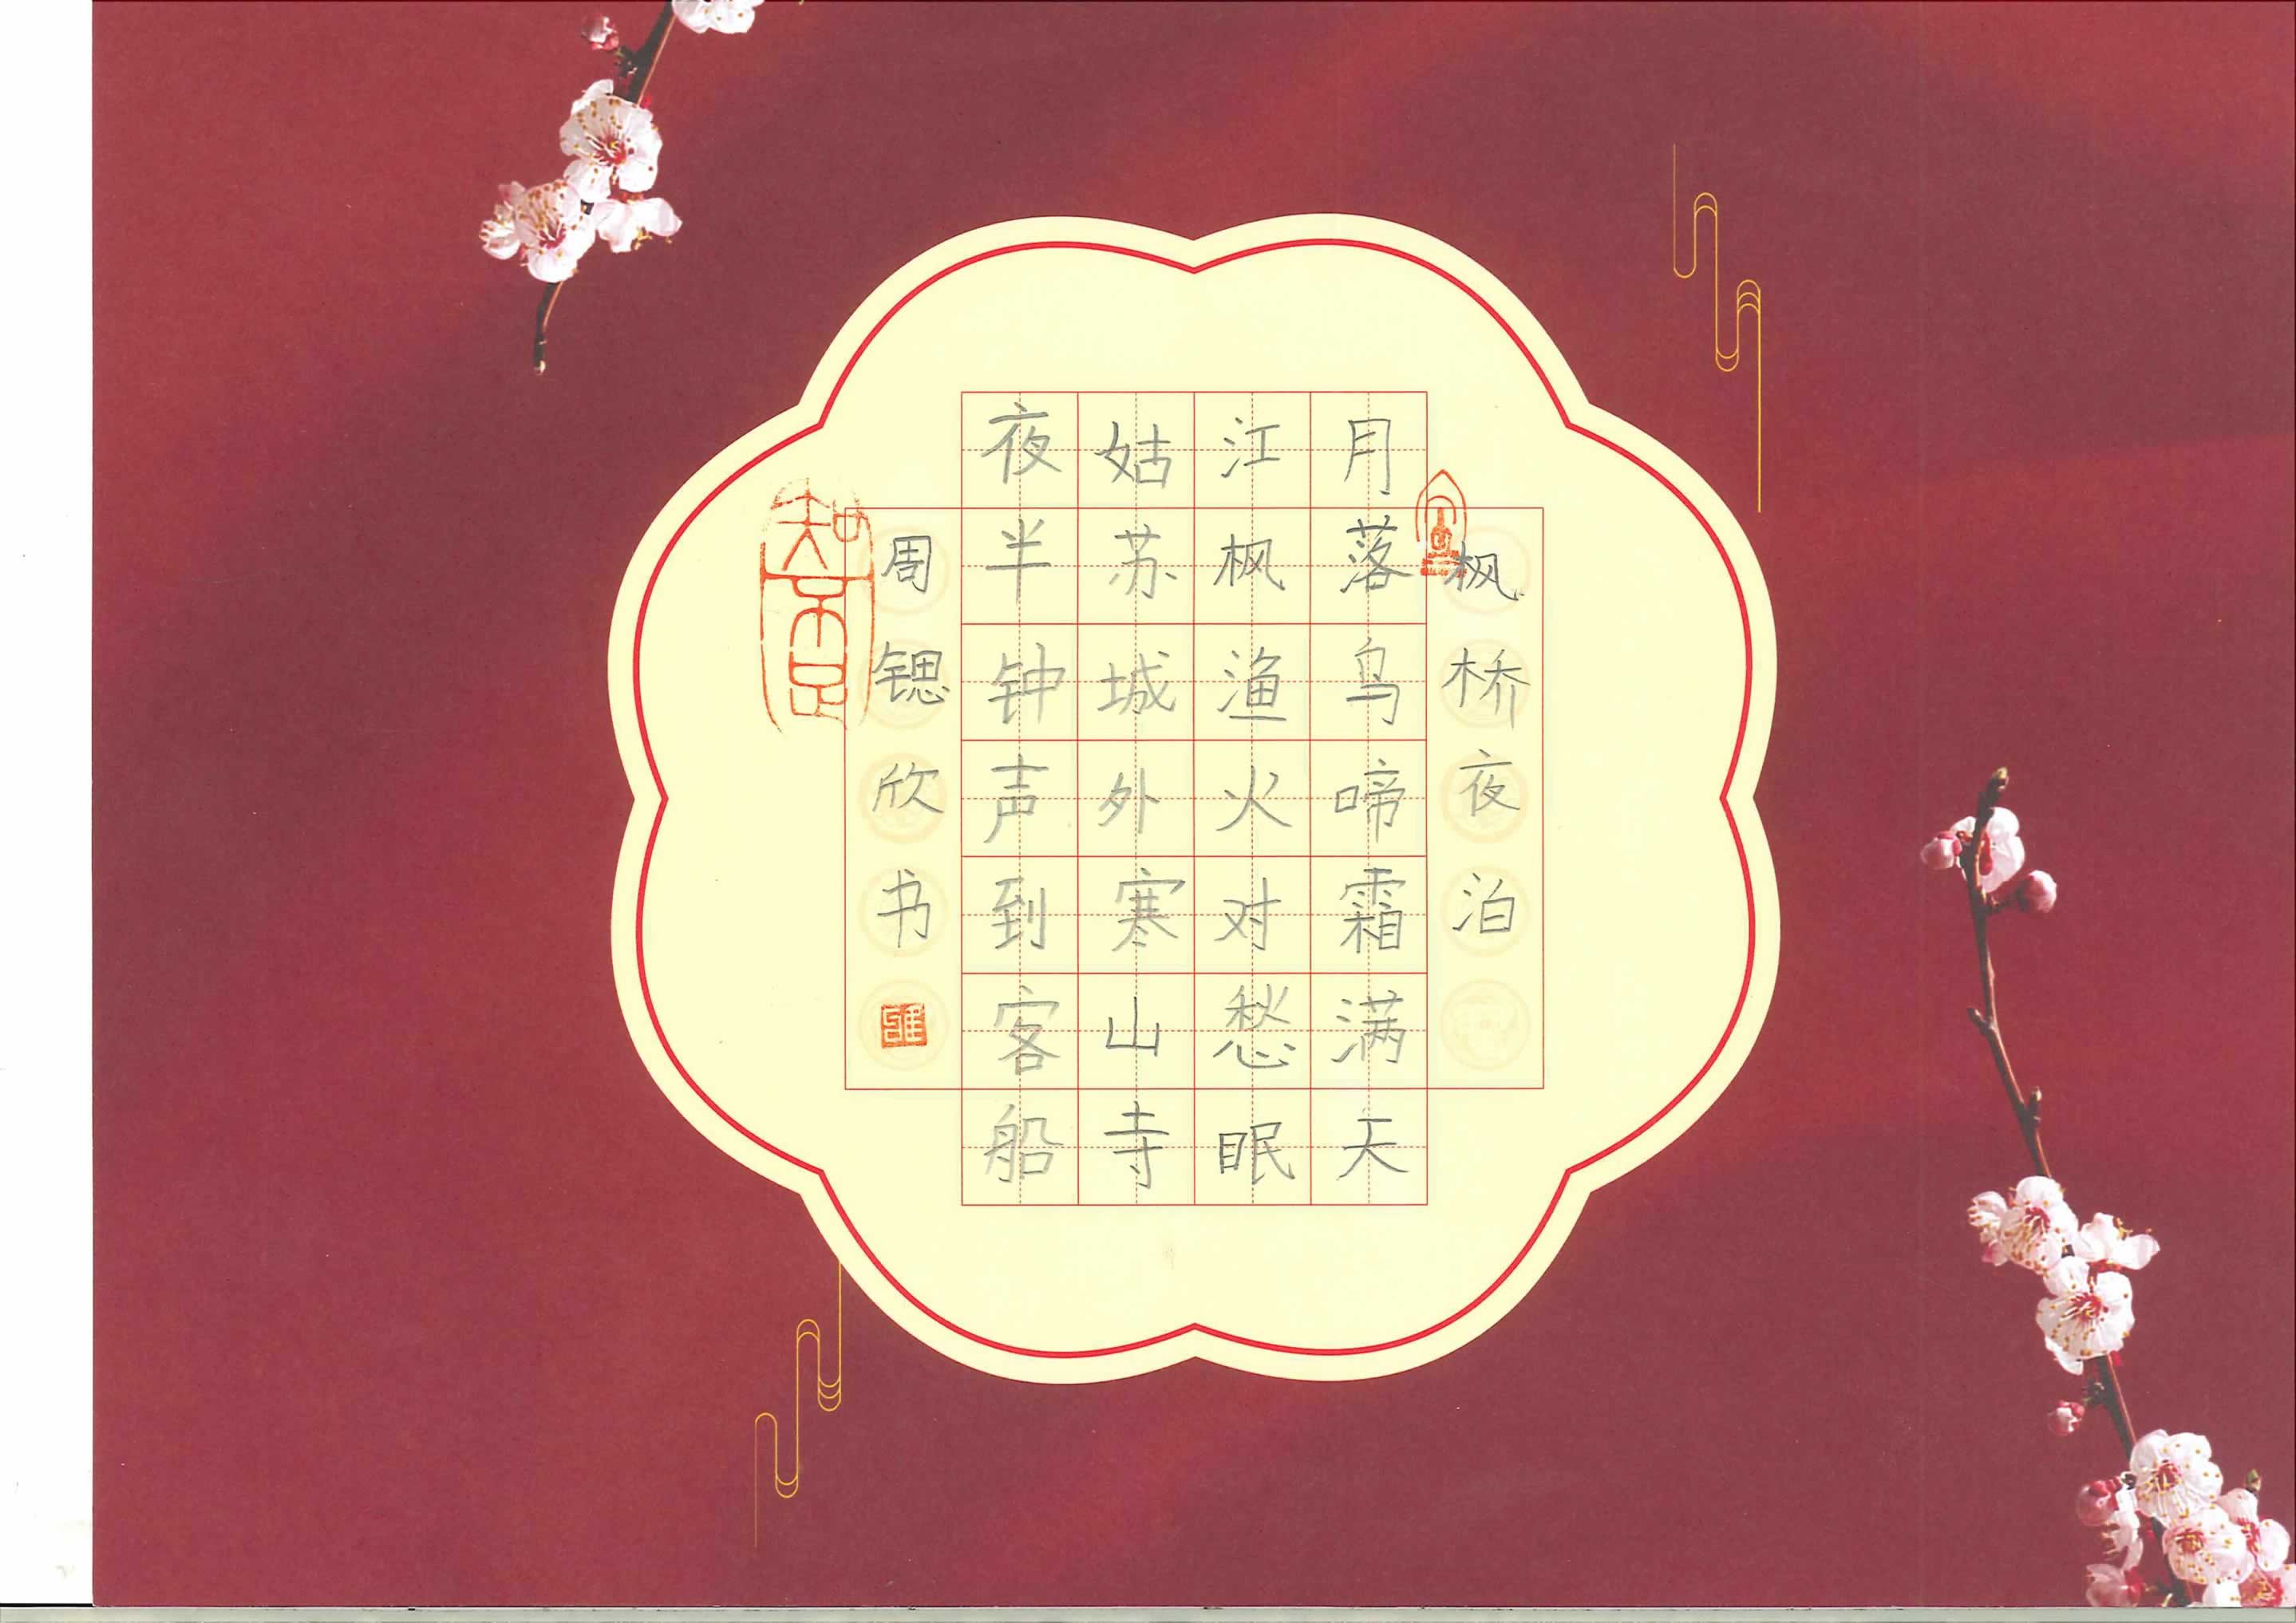 枫桥夜泊
月落乌啼霜满天
江枫渔火对愁眠
姑苏城外寒山寺
夜半钟声到客船
周锶欣书
知不足